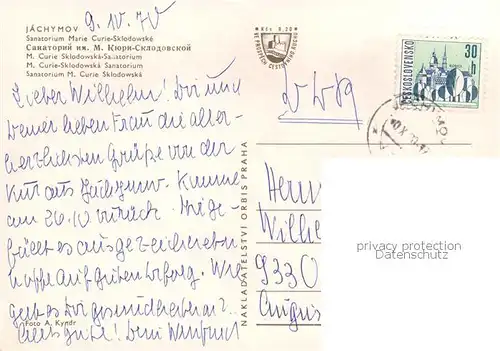 9. IV. 70
JÁCHYMOV
Sanatorium Marie Curie-Sklodowské
Санаторий им. М. Кюри-Склодовской
M. Curie Sklodowská-Sanatorium
M. Curie Sklodowská-Sanatorium
Sanatorium M. Curie Sklodowská
Kčs 0,20
VE PROSPĚCH CESTOVNÍHO RUCHU
ČESKOSLOVENSKO
30 h
Lieber Wilhelm! Dir und
Deiner lieben Frau die aller-
herzlichsten Grüße von der
Kur aus Jachymov. Komme
am 26.10 zurück. Mir ge-
fällt es ausgezeichnet u.
hoffe auf guten Erfolg. Wie
geht es Dir gesundheitlich?
Alles Gute! Dein Manfred
Foto A. Kyndr
NAKLADATELSTVÍ ORBIS PRAHA
Herrn
Wilhe
9330
privacy protection
Datenschutz